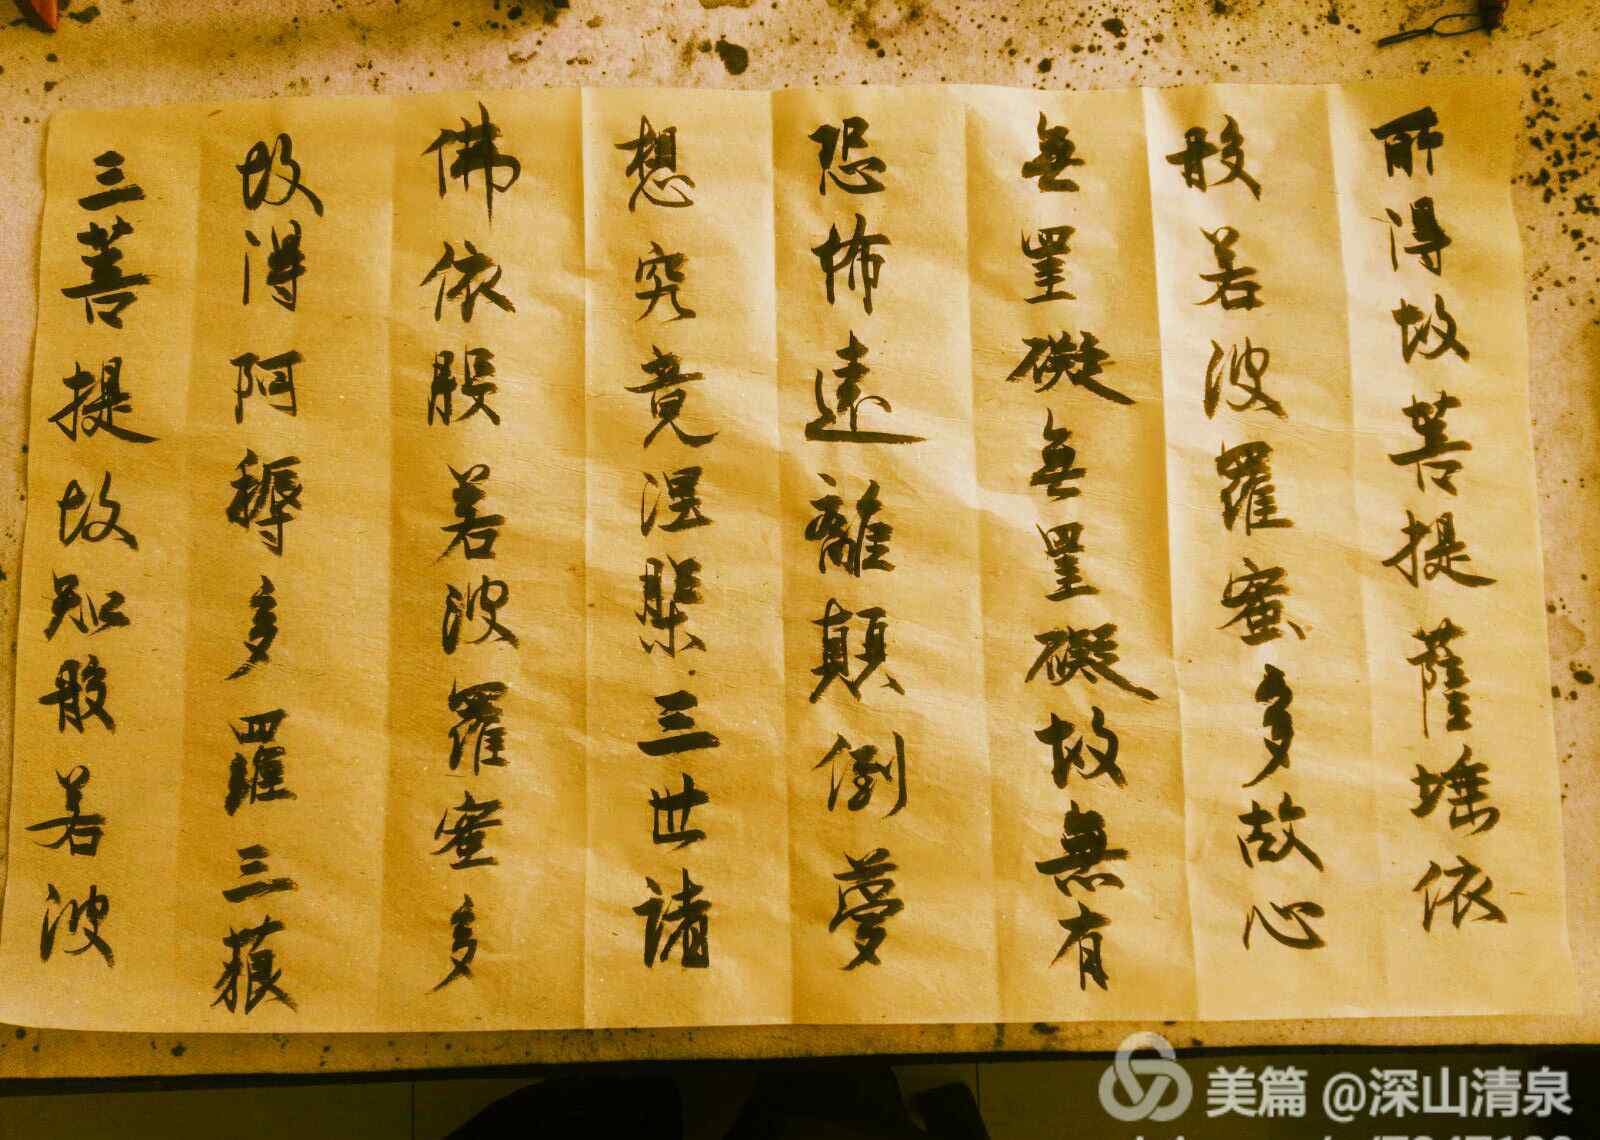 所得故菩提薩埵依
般若波羅蜜多故心
無罣礙無罣礙故無有
恐怖遠離顛倒夢
想究竟涅槃三世諸
佛依般若波羅蜜多
故得阿耨多羅三藐
三菩提故知般若波
美篇 @深山清泉